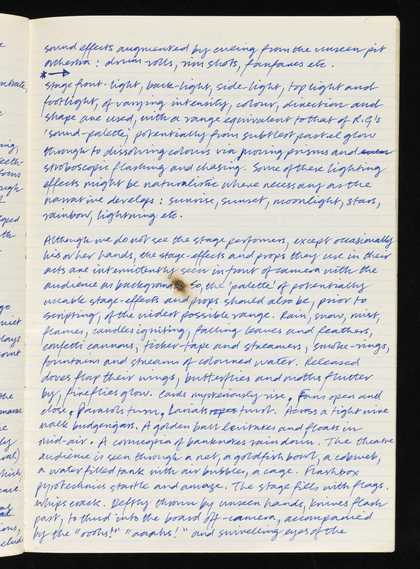 sound effects augmented by cueing from the unseen pit
orchestra : drum rolls, rim shots, fanfares etc.
* →
Stage front-light, back-light, side-light, top light and
footlight, of varying intensity, colour, direction and
shape are used, with a range equivalent to that of R.G's
'sound-palette'; potentially from subtlest pastel glow
through to dissolving colours via moving prisms and even
stroboscopic flashing and chasing. Some of these lighting
effects might be naturalistic where necessary as the
narrative develops : sunrise, sunset, moonlight, stars,
rainbow, lightning etc.
Although we do not see the stage performers, except occasionally
his or her hands, the stage-effects and props they use in their
acts are intermittently seen in front of camera with the
audience as background. So, the 'palette' of potentially
useable stage-effects and props should also be, prior to
scripting, of the widest possible range. Rain, snow, mist,
flames, candles igniting, falling leaves and feathers,
confetti cannons, ticker-tape and streamers, smoke-rings,
fountains and streams of coloured water. Released
doves flap their wings, butterflies and moths flutter
by, fireflies glow. Cards mysteriously rise. Fans open and
close. Parasols turn. Lariats twirl. Across a tight wire
walk budgerigars. A golden ball levitates and floats in
mid-air. A cornucopia of banknotes rain down. The theatre
audience is seen through a net, a goldfish bowl, a cobweb,
a water filled tank with air bubbles, a cage. Flashbox
pyrotechnics startle and amaze. The stage fills with flags.
Whips crack. Deftly thrown by unseen hands, knives flash
past, to thud into the board off-camera, accompanied
by the "oohs!" "aaahs!" and swivelling eyes of the